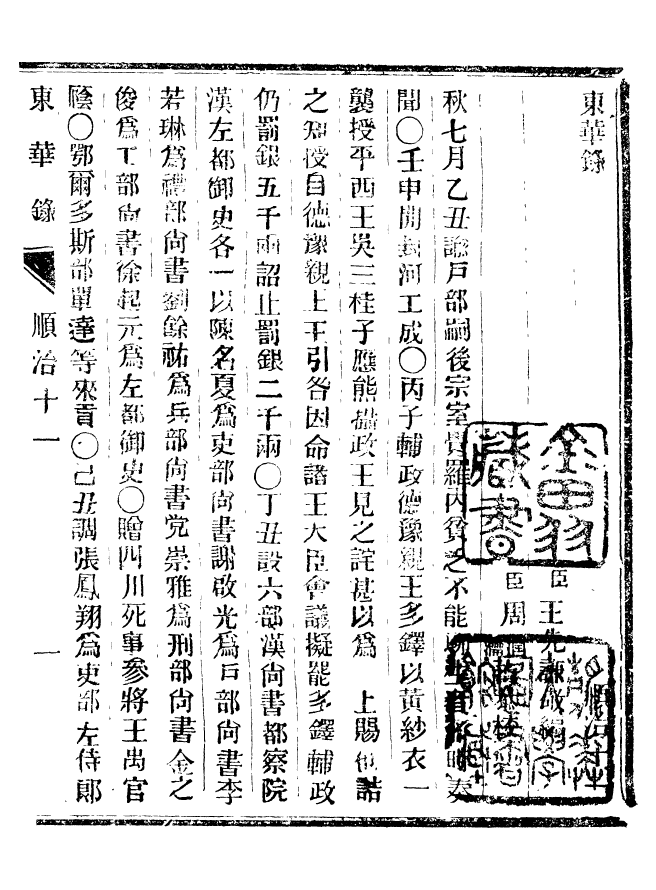 東華錄
臣王先謙敬編
臣周
秋七月乙丑諭戶部嗣後宗室覺羅內貧乏不能奏
聞〇壬申開封河工成〇丙子輔政德豫親王多鐸以黃紗衣一
襲授平西王吳三桂子應熊攝政王見之詫甚以爲　上賜也詰
之知授自德豫親王王引咎因命諸王大臣會議擬罷多鐸輔政
仍罰銀五千兩詔止罰銀二千兩〇丁丑設六部漢尙書都察院
漢左都御史各一以陳名夏爲吏部尙書謝啟光爲戶部尙書李
若琳爲禮部尙書劉餘祐爲兵部尙書党崇雅爲刑部尙書金之
俊爲工部尙書徐起元爲左都御史〇贈四川死事參將王禹官
廕〇鄂爾多斯部單達等來貢〇己丑調張鳳翔爲吏部左侍郞
東華錄　順治十一　一